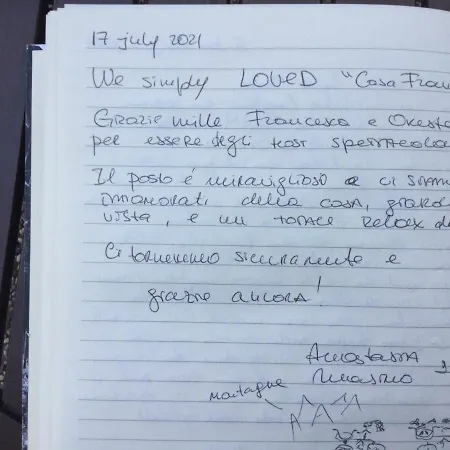 17 july 2021
We simply LOVED "Casa Fran
Grazie mille Francesca e Oreste
per essere degli host spettacola
Il posto é meraviglioso e ci siam
innamorati della casa, giard
vista, e un totale relax d
Ci torneremo sicuramente e
grazie ancora!
Anastasia
montagne